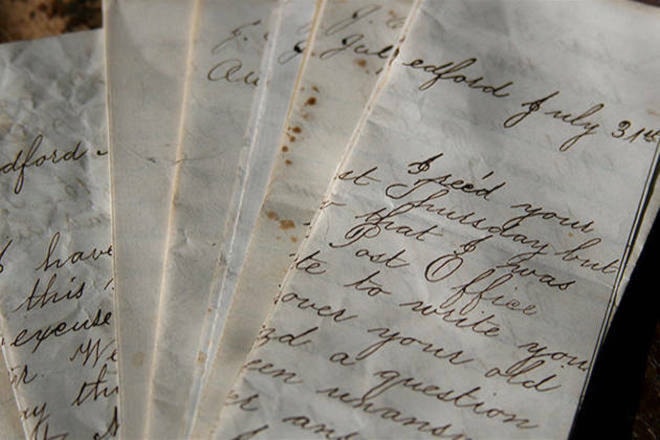 dford
have
this
excuse
We
J.
Au
J.
Jul
edford July 31st
I rec'd your
st Thursday but
that I was
Post Office
te to write you
over your old
d a question
een unans